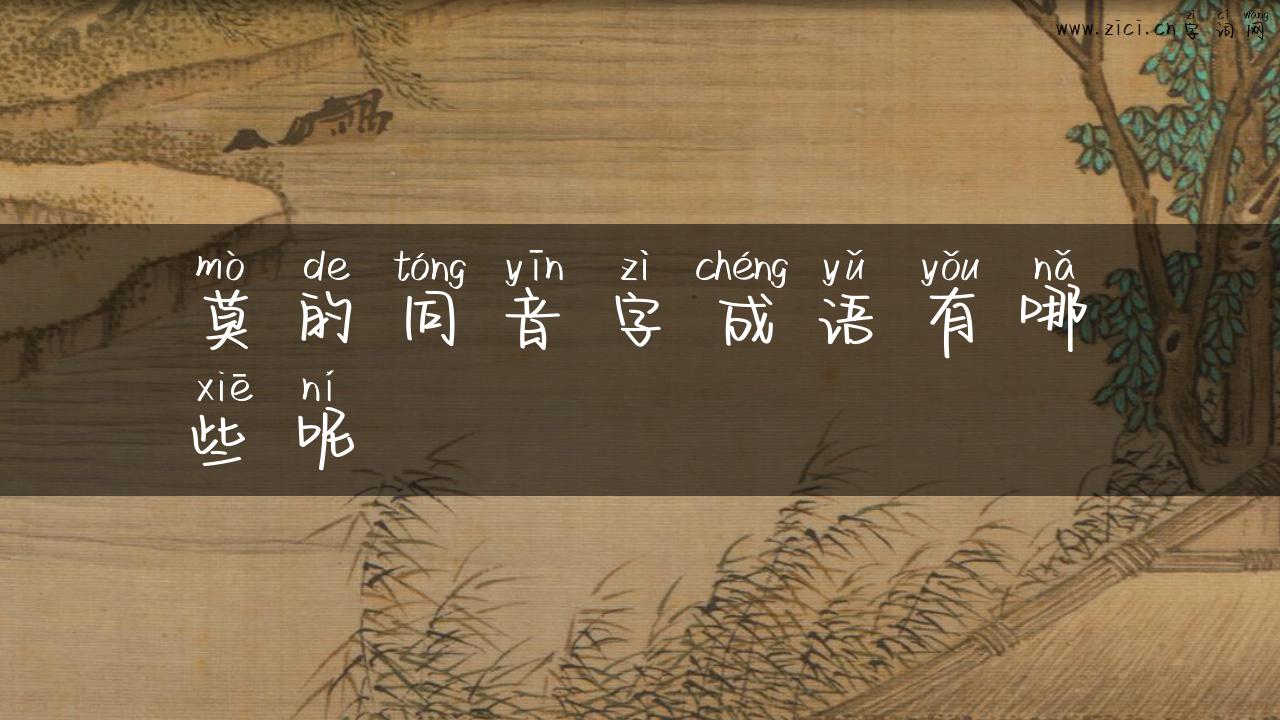 zì cí wǎng
www.zici.cn字词网
mò de tóng yīn zì chéng yǔ yǒu nǎ
莫的同音字成语有哪
xiē ní
些呢